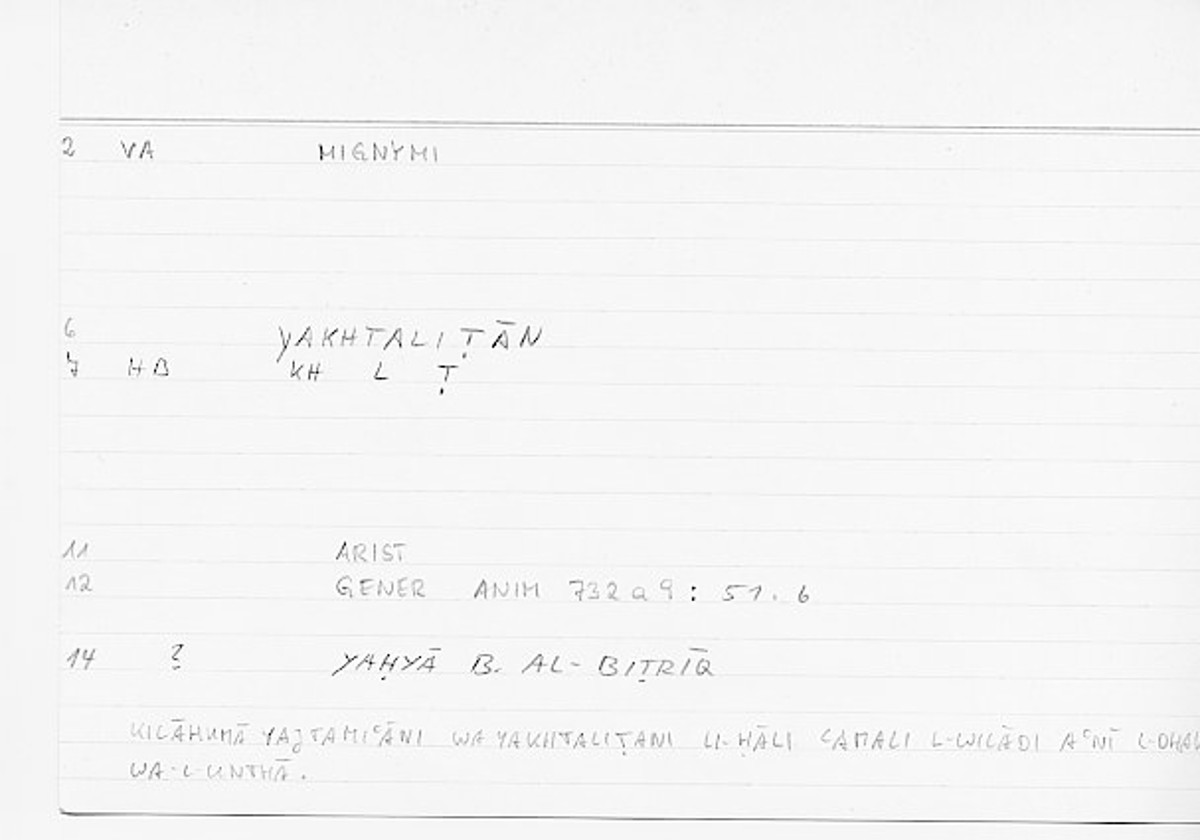 2 VA MIGNYMI
6 YAKHTALIṬĀN
7 HB KH L Ṭ
11 ARIST
12 GENER ANIM 732a9: 51.6
14 ? YAḤYĀ B. AL-BIṬRĪQ
KILĀHUMĀ YAJTAMIʿĀNI WA YAKHTALIṬANI LI-ḤĀLI ʿAMALI L-WILĀDI AʿNĪ
WA-L-UNTHĀ.